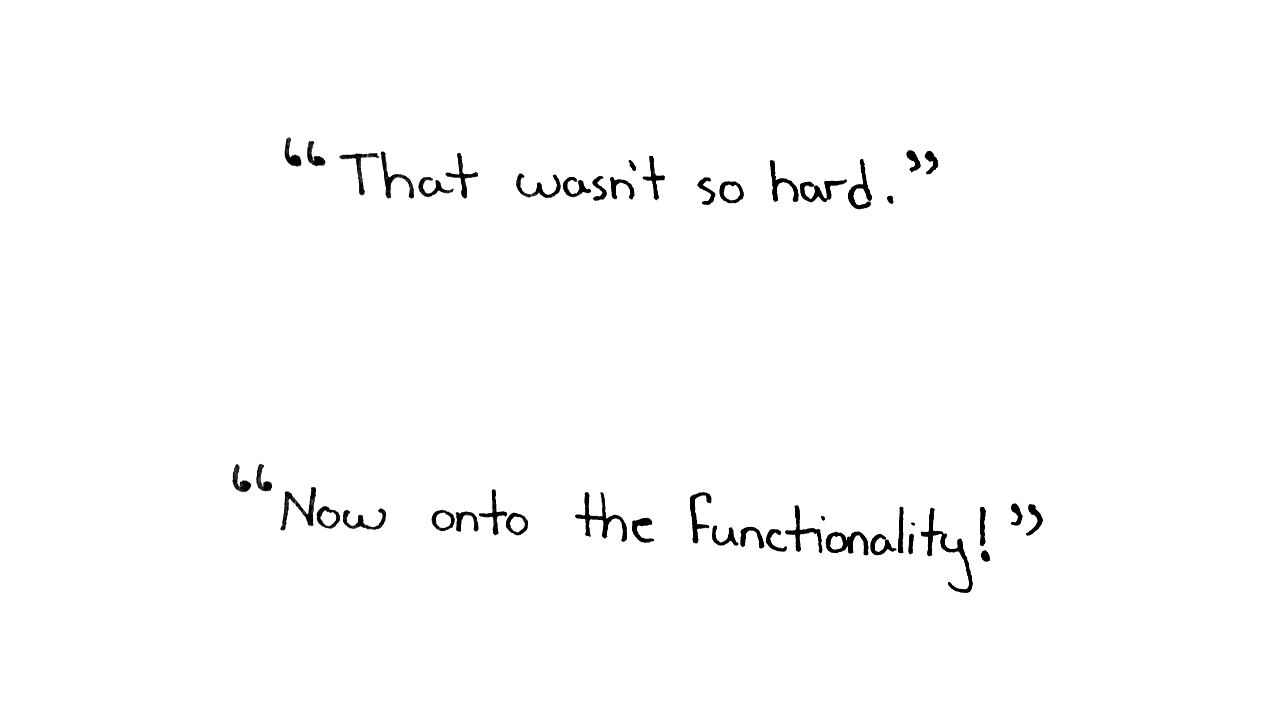 “That wasn't so hard.”
“Now onto the functionality!”